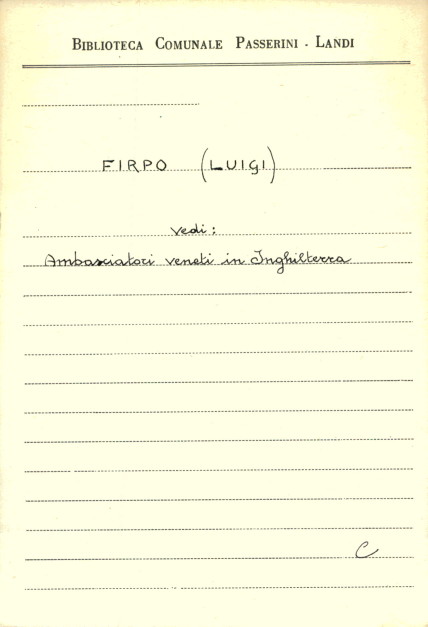 BIBLIOTECA COMUNALE PASSERINI - LANDI
FIRPO (LUIGI)
vedi:
Ambasciatori veneti in Inghilterra
C